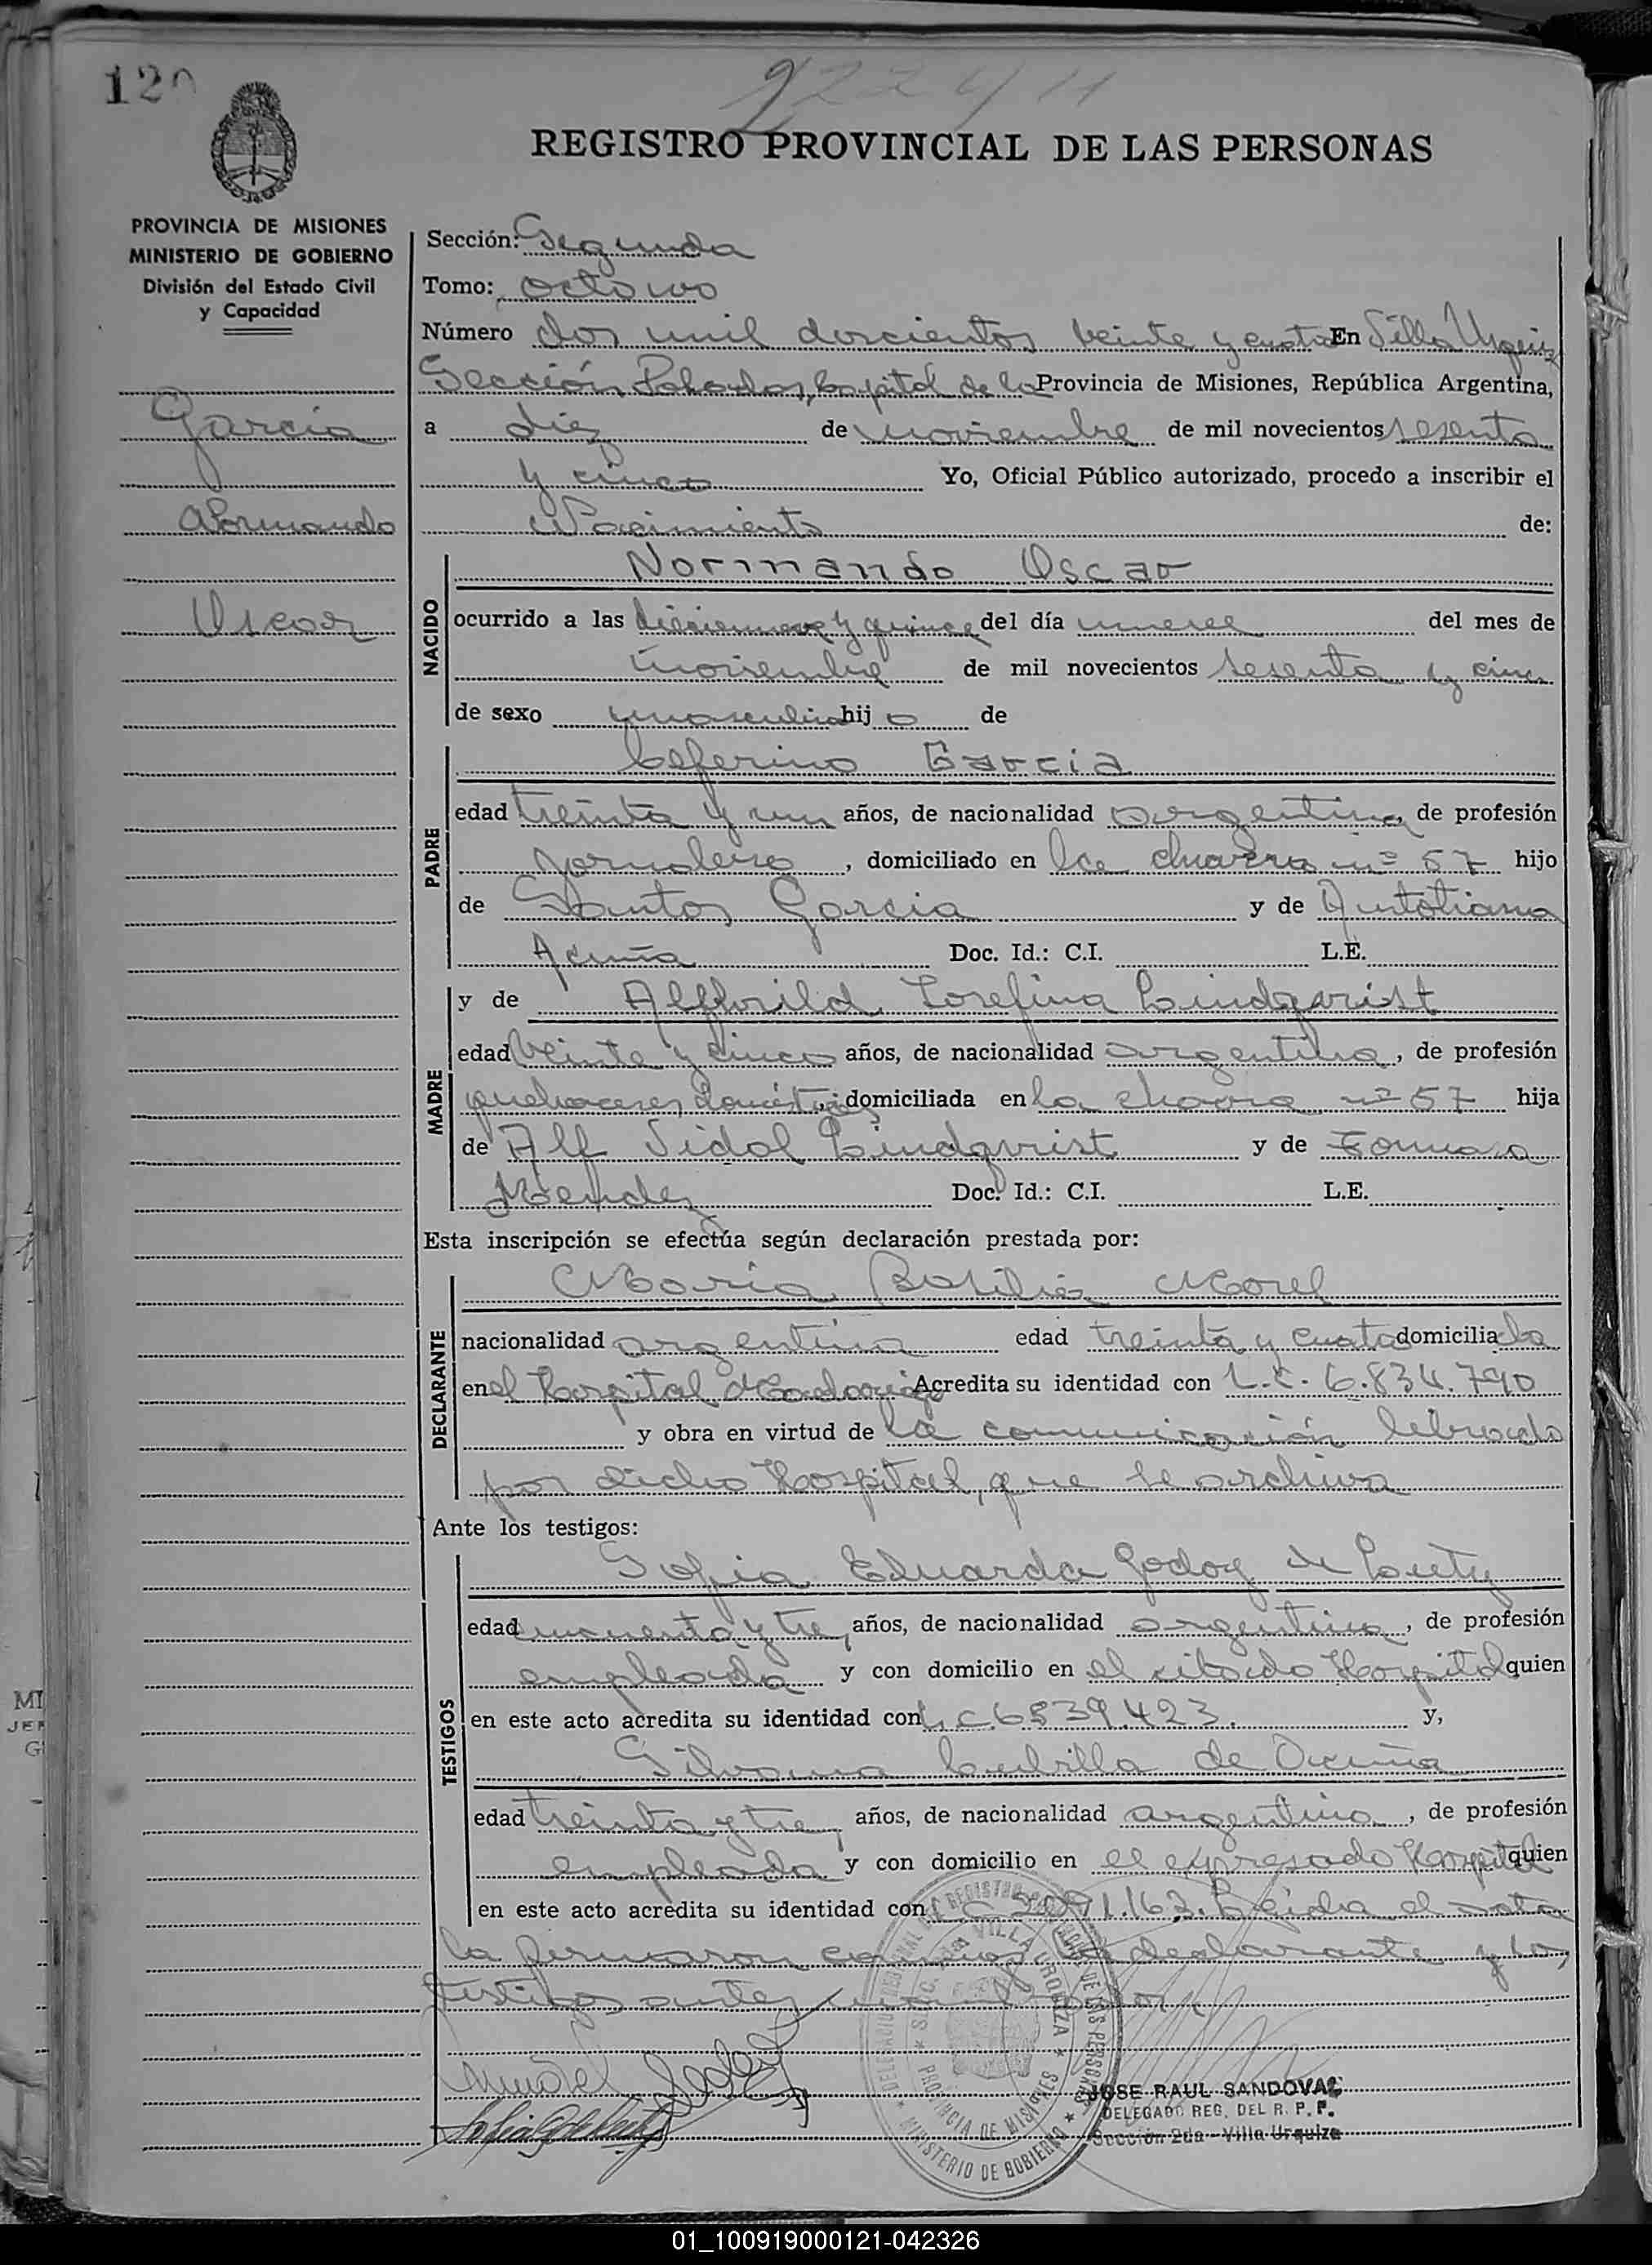 120
REGISTRO PROVINCIAL DE LAS PERSONAS
PROVINCIA DE MISIONES
MINISTERIO DE GOBIERNO
División del Estado Civil
y Capacidad
Garcia
Normando
Oscar
Sección: Segunda
Tomo: octavo
Número dos mil doscientos veinte y cuatro En Villa Urquiza
Sección Posadas, Capital de la Provincia de Misiones, República Argentina,
a diez de noviembre de mil novecientos sesenta
y cinco Yo, Oficial Público autorizado, procedo a inscribir el
Nacimiento de:
NACIDO
Normando Oscar
ocurrido a las diecinueve y quince del día nueve del mes de
noviembre de mil novecientos sesenta y cinco
de sexo masculino hijo de
PADRE
Ceferino Garcia
edad treinta y un años, de nacionalidad argentina, de profesión
jornalero, domiciliado en la chacra nº 57 hijo
de Santos Garcia y de
Acuña Doc. Id.: C.I. L.E.
MADRE
y de Alfhild Josefina Lindqvist
edad veinte y cinco años, de nacionalidad argentina, de profesión
quehaceres domésticos, domiciliada en la chacra nº 57 hija
de Alf Vidal Lindqvrist y de
Mendez Doc. Id.: C.I. L.E.
Esta inscripción se efectúa según declaración prestada por:
DECLARANTE
Maria Basilia Morel
nacionalidad argentina edad treinta y cuatro domiciliada
en el Hospital Madariaga Acredita su identidad con L.C. 6.834.790
y obra en virtud de la comunicación librada
por dicho Hospital, que se archiva
Ante los testigos:
TESTIGOS
Sofia Eduarda Godoy de
edad cuarenta y tres años, de nacionalidad argentina, de profesión
empleada y con domicilio en el citado Hospital quien
en este acto acredita su identidad con L.C. 6839.423. y,
Silvana Cubilla de Acuña
edad treinta y tres años, de nacionalidad argentina, de profesión
empleada y con domicilio en el expresado Hospital quien
en este acto acredita su identidad con L C 1.163. Leida el acta
la firmaron conmigo la declarante y los
testigos antes
JOSE RAUL SANDOVAL
DELEGADO REG. DEL R. P. P.
Sección 2da - Villa Urquiza
01_100919000121-042326